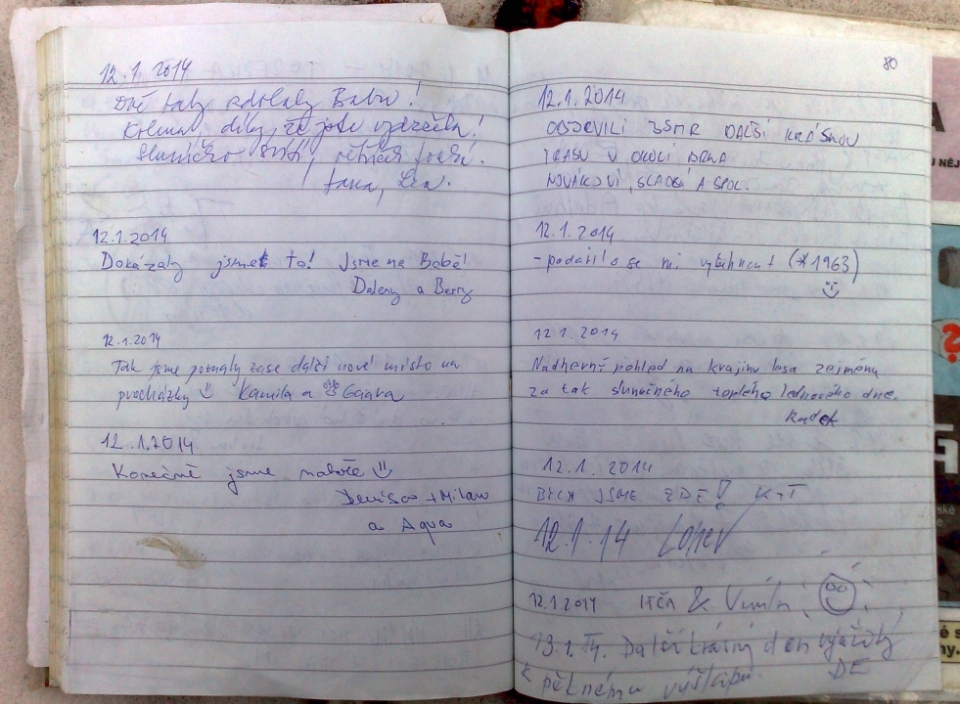 12.1.2014
Dvě baby zdolaly Babu!
sluníčko svítí, větříček fouká.
Jana, Lea.
12.1.2014
Dokázaly jsme to! Jsme na Babě!
a Berry
12.1.2014
Tak jsme poznaly zase další nové místo na
procházky Kamila a Gaara
12.1.2014
Konečně jsme nahoře
Denisa + Milan
a Aqua
80
12.1.2014
OBJEVILI JSME DALŠÍ KRÁSNOU
TRASU V OKOLÍ BRNA
NOVÁKOVI, SLADCÍ A SPOL.
12.1.2014
- podařilo se mi vyběhnout (*1963)
12.1.2014
Nádherný pohled na krajinu lesa zejména
za tak slunečného teplého lednového dne.
Radek
12.1.2014
BYLI JSME ZDE!
12.1.14
12.1.2014 &
13.1.14. Další krásný den využitý
k pěknému výšlapu. DE